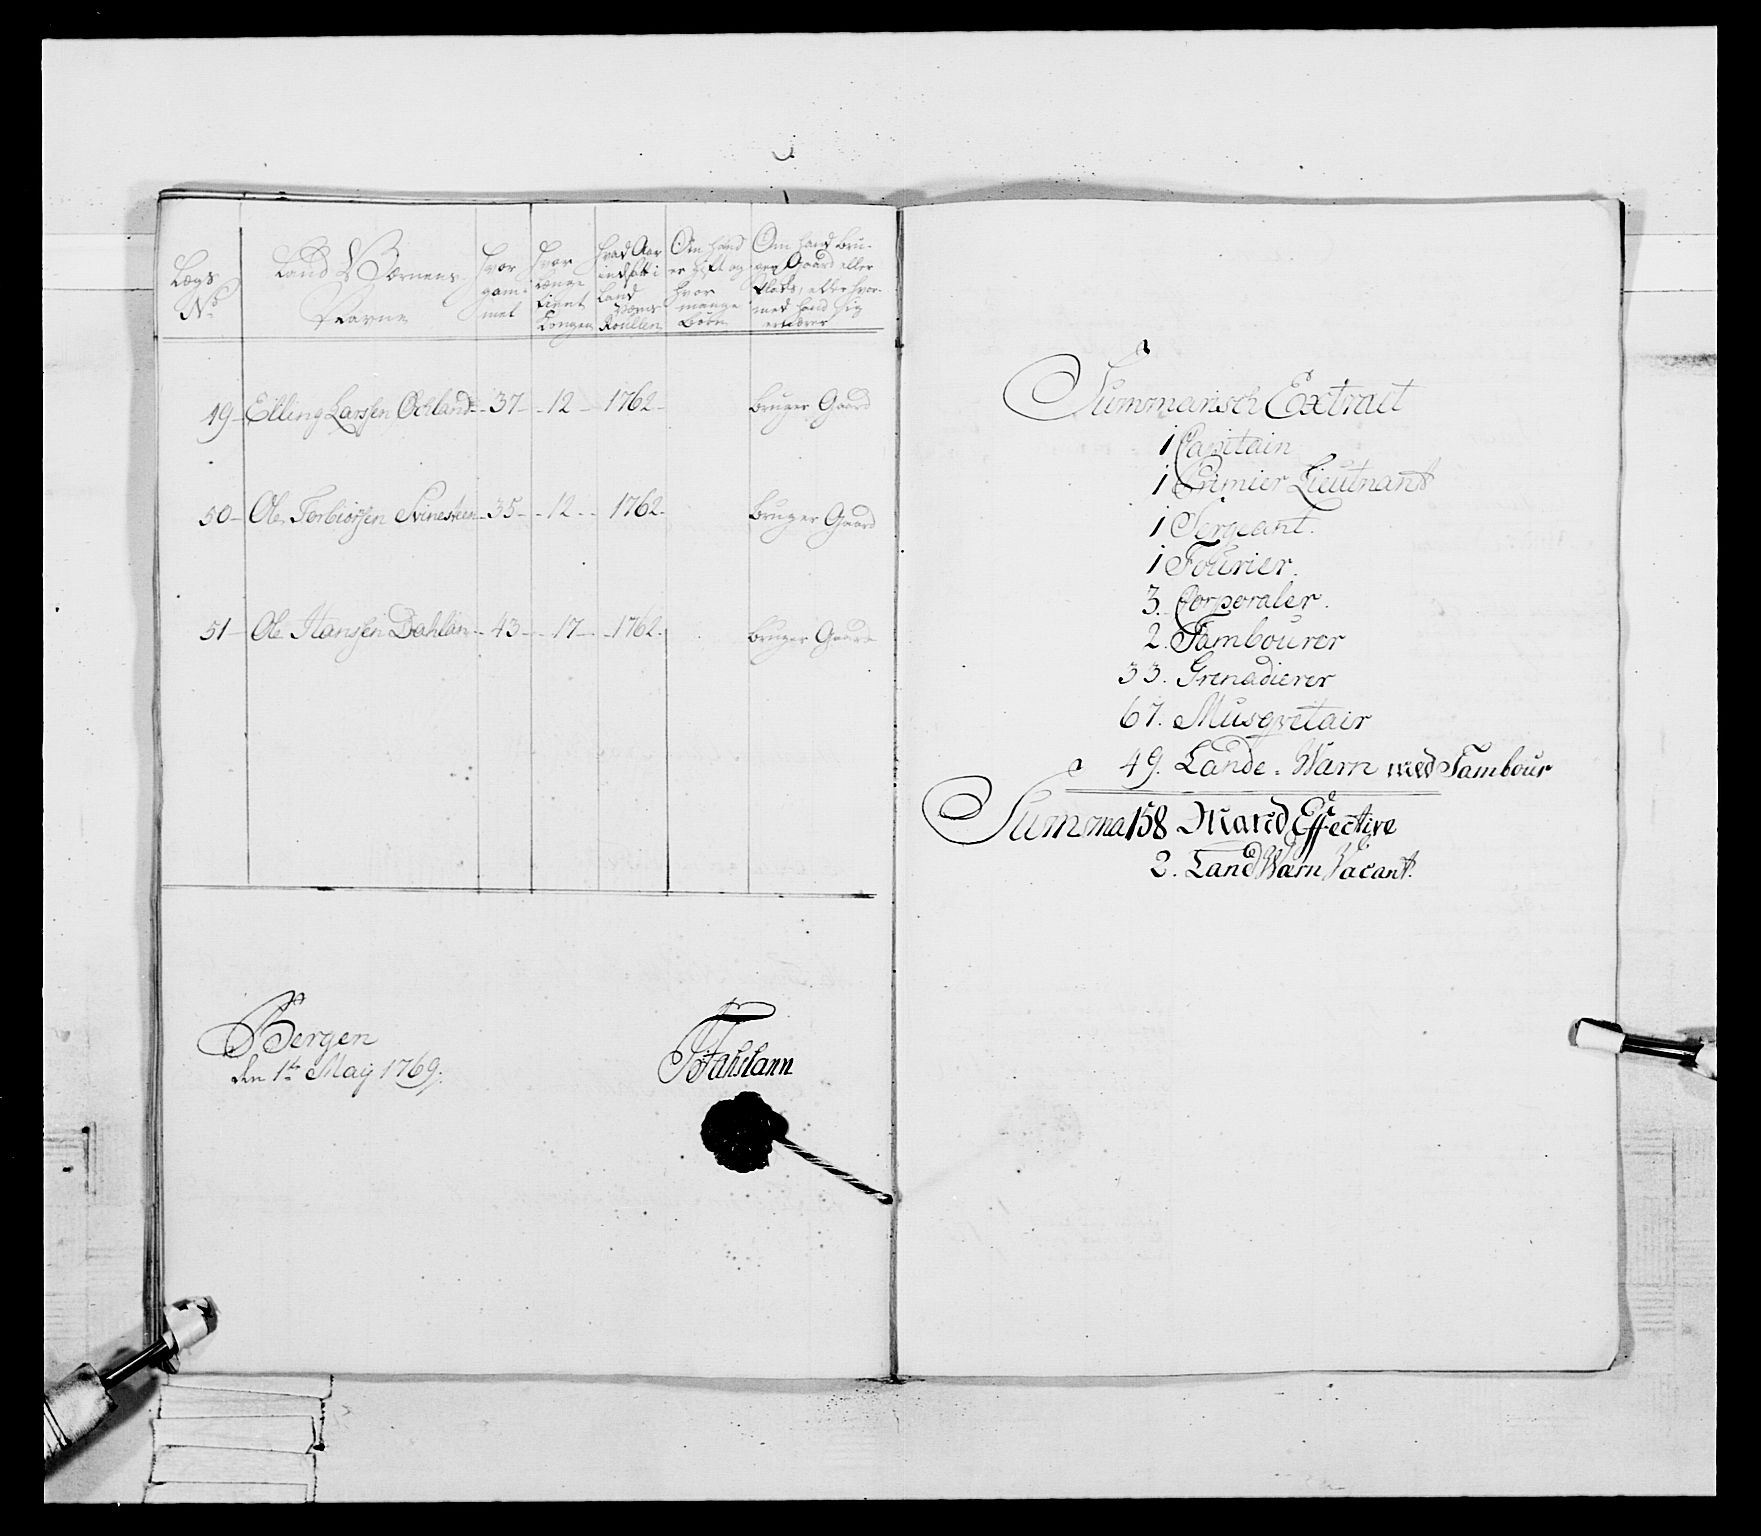 Lægs No
Land Værnens Navne
Hvor gammel
Hvor længe tient Kongen
Hvad Aar indsat i Land Værns Roullen
Om hand er gift og hvor mange Børn
Om hand bruger Gaard eller Plads, eller hvormed hand sig ernærer
49 Elling Larssen 37 12 1762 bruger Gaard
50 Ole Torbiørsen Svinesteen 35 12 1762 bruger Gaard
51 Ole Hanssen 43 17 1762 bruger Gaard
Bergen
den 1te May 1769.
Summarisch Extract
1 Capitain
1 Primier Lieutnant
1 Sergeant.
1 Fourier.
3. Corporaler.
2. Tambourer
33. Grenadierer
67. Musqvetair
49. Lande-Værn med Tambour
Summa 158 Mand Effective
2. Land Værn Vacant.